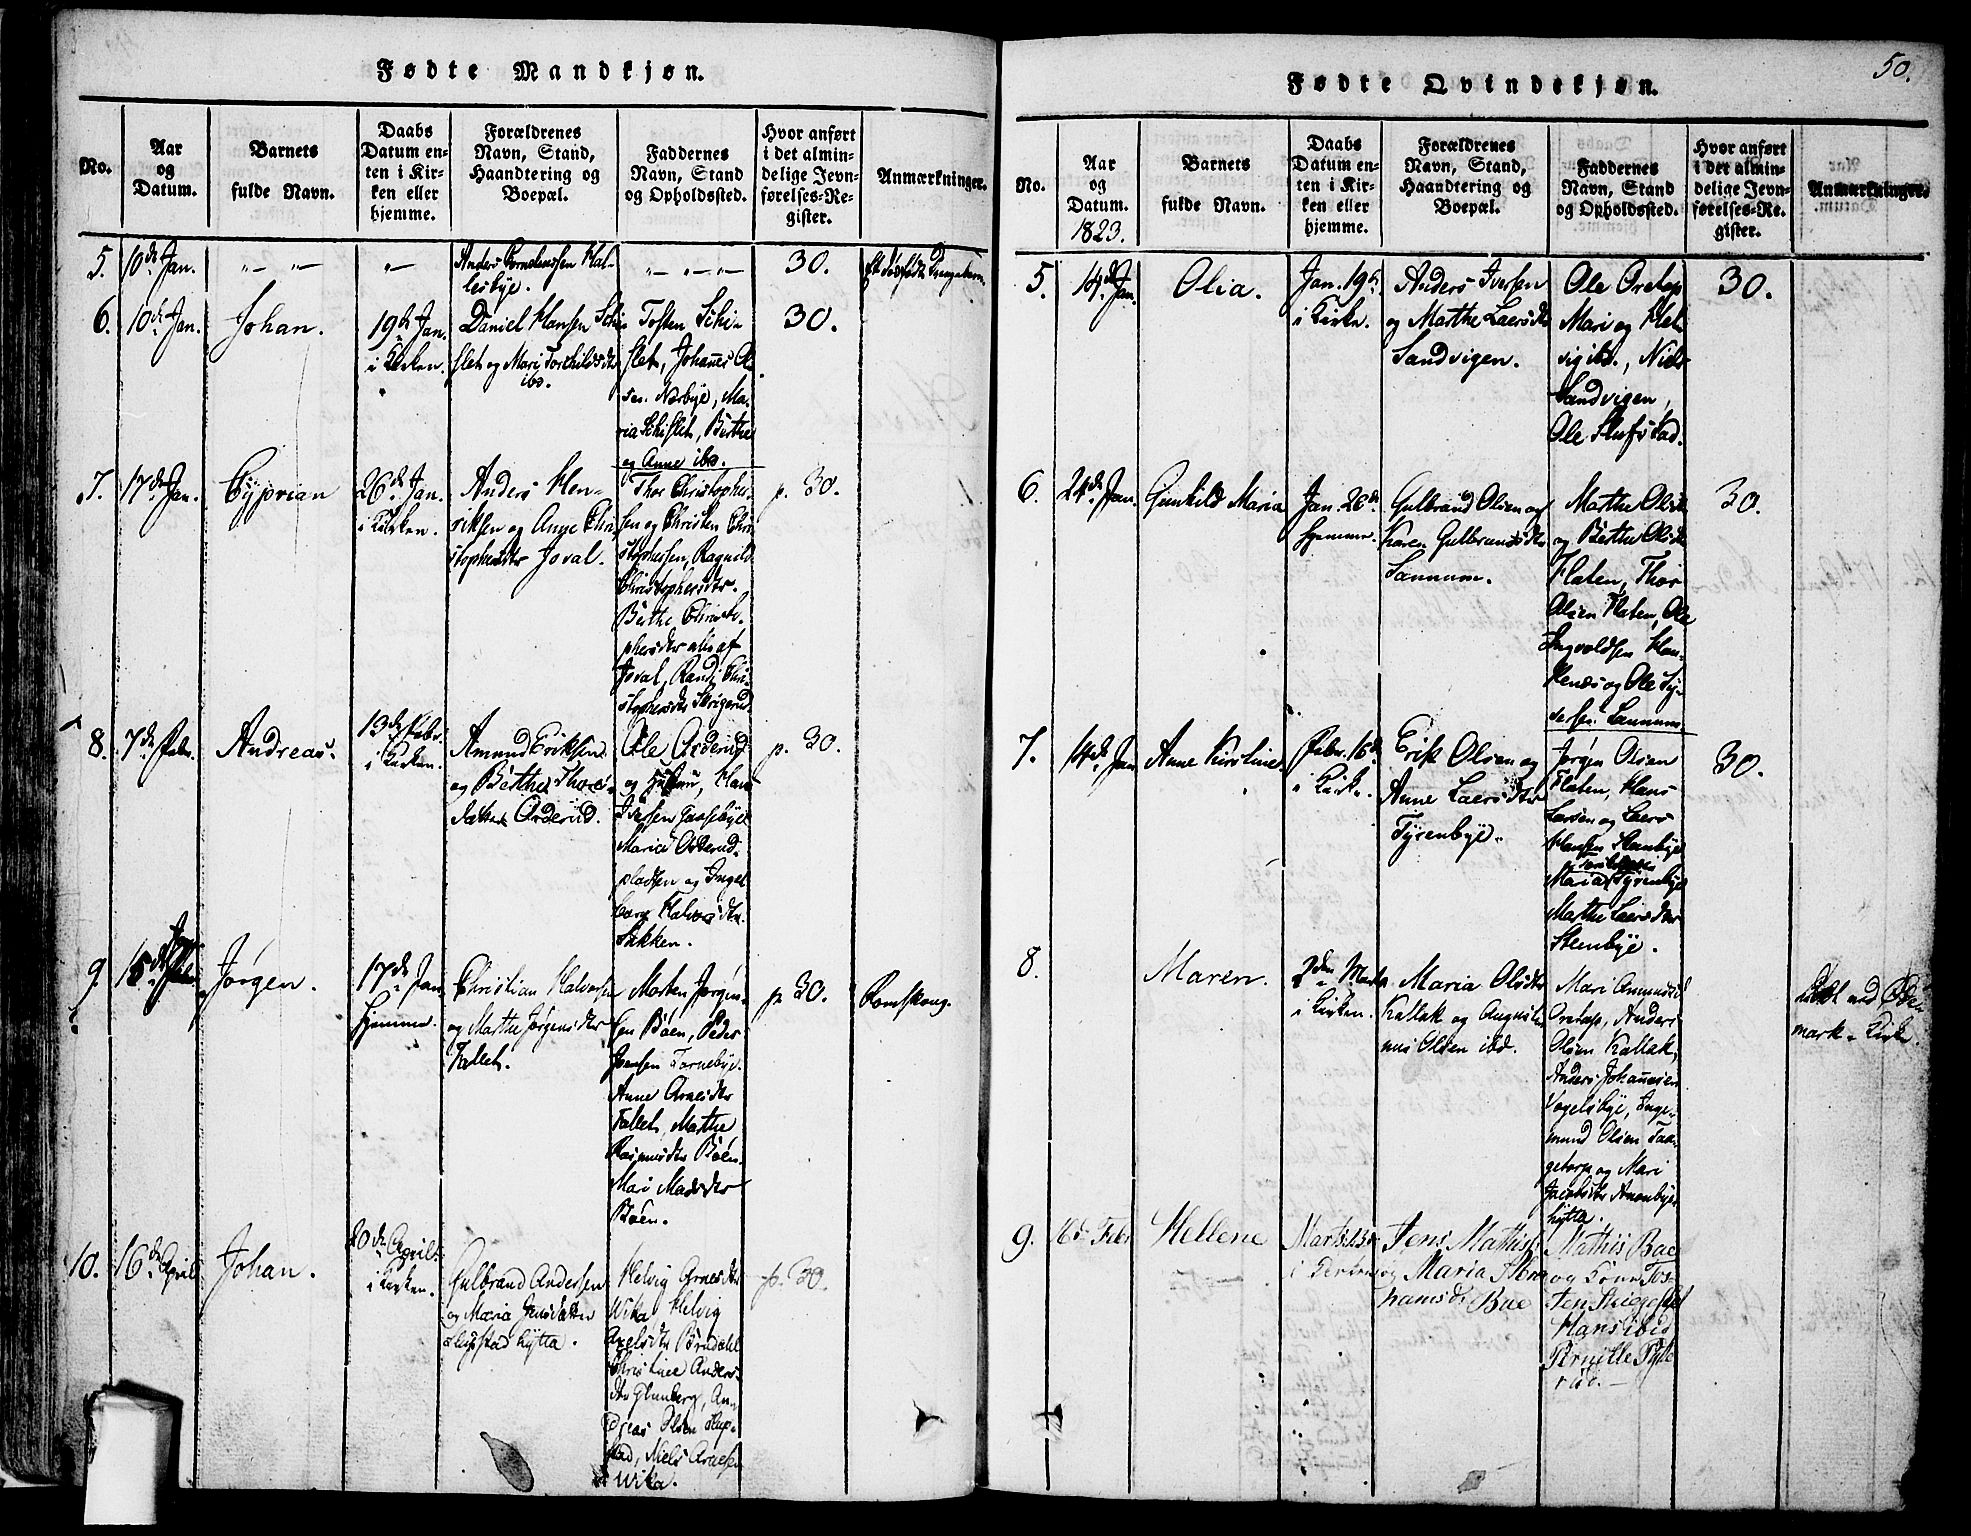 Fødte Mandkjøn.
No.
Aar
og
Datum.
Barnets
fulde Navn.
Daabs
Datum en-
ten i Kir-
ken eller
hjemme.
Forældrenes
Navn, Stand,
Haandtering og
Boepæl.
Faddernes
Navn, Stand
og Opholdssted.
Hvor anført
i det almin-
delige Jevn-
førelses-Re-
gister.
Anmærkninger.
5.
10de Jan.
"— "—
"—
Anders
lesbye.
"— "— "—
30.
6.
10de Jan.
Johan.
19de Jan.
i Kirken.
Daniel Hansen Schi-
slet og Mari Torchildsdtr
ibd.
Tosten Schi-
slet, Johanes Ol-
sen Nærbye, Ma-
ria Schislet, Berthe
og Anne ibd.
30.
7.
17de Jan.
Cyprian
26de Jan.
i Kirken.
Anders Hen-
riksen og Anne Chri-
stophersdtr Joval.
Thor Christopher-
sen og Christen Chri-
stophersen, Ragnild
Christophersdtr.
Berthe Christo-
phersdtr alle af
Joval, Randi Chri-
stophersdtr
p. 30.
8.
7de Febr.
Andreas.
13de Febr.
i Kirken.
Amund Eriksen
og Berthe Thores-
datter Orderud.
Ole Orderud
og Hustru, Hans
Iversen Gaasebye
Maria Orderud-
pladsen og Ingel
borg Halvorsdtr
Sukken.
p. 30.
9.
15de Jan.
Jørgen.
17de Jan.
hjemme.
Christian Halvorsen
og Marthe Jørgensdtr
Fallet.
Morten Jørgen-
sen Böen, Peder
Jensen Tornebye.
Anne Arnesdtr
Fallet, Marthe
Rasmusdtr Böen.
Mari Madsdtr
Böen.
p 30.
Romskong.
10.
16de April
Johan.
20de April.
i Kirken.
Gulbrand Andersen
og Maria Jensdatter
hytta.
Helvig Arnesdtr
Wika, Helvig
Axelsdtr Börndahl
Christine Anders-
dtr Glenberg, An
dreas Olsen
stad, Niels Arnesen
Wika.
p. 30.
50.
Fødte Qvindekjøn.
No.
Aar
og
Datum.
1823.
Barnets
fulde Navn.
Daabs
Datum en-
ten i Kir-
ken eller
hjemme.
Forældrenes
Navn, Stand,
Haandtering og
Boepæl.
Faddernes
Navn, Stand
og Opholdssted.
Hvor anført
i det almin-
delige Jevn-
førelses-Re-
gister.
Anmærkninger.
5.
14de Jan.
Olia.
Jan. 19de
i Kirke.
Anders Iversen
og Marthe Laersdtr
Sandvigen.
Ole Oretop
Mari og Hel-
vig ibd., Niels
Sandvigen,
Ole
30.
6.
24de Jan.
Gunhild Maria
Jan. 26de
hjemme.
Gulbrand Olsen og
Karen Gulbrandsdtr
Sannum.
Marthe Olsdtr
og Berthe Olsdtr
Flaten, Thor
Olsen Flaten, Ole
Ingvoldsen Han-
kenæs og Ole
dersen Sannum.
30.
7.
14de Jan
Anne Kirstine
Febr. 16de
i Kirke.
Erik Olsen og
Anne Laersdtr
Tyrenbye.
Jørgen Olsen
Flaten, Hans
Larsen og Laers
Hansen Stenbye
Maria Tyrenbye
Marthe Laersdtr
Stenbye.
30.
8.
Maren.
2den Marts
i Kirken.
Maria Olsdtr
Kallak og Augusti-
nus Olsen ibd.
Mari Amundsd
Oretop, Anders
Olsen Kallak,
Anders Johannesen
Vogelsbye, Inge-
mund Olsen Taa-
getorp og Mari
Jacobsdtr
hytta.
døbt ved Öde
mark Kirke.
9.
16d Febr
Hellene
i Kirken
Jens Mathis
og Maria Abra
hamsd. Bae
Mathis Bae
og Tosten
Hans ibid
Pernille
30.